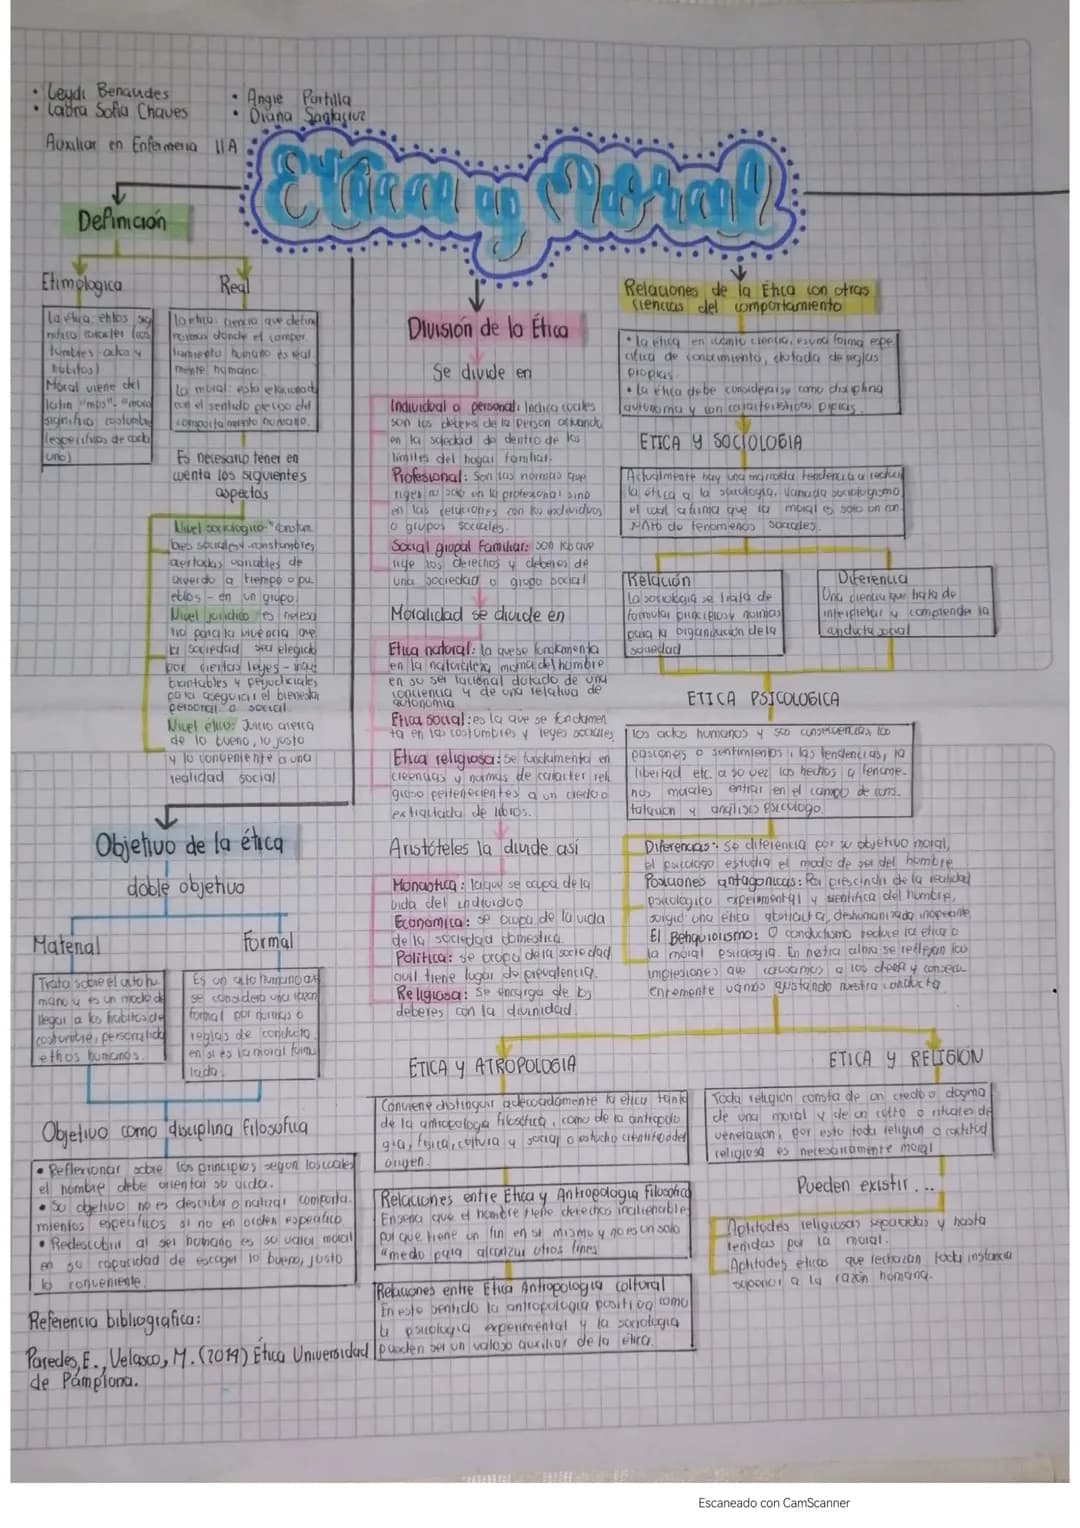 • Leydi Benavides
• Laura Sofia Chaves
• Angie Portilla
• Diana Santacruz
Auxiliar en Enfermeria 11A
Etica y Moral
Definición
Etimologica
La etica: ethos sig
nifica caracter (cos
tumbres actos y
habitos)
Moral viene del
latin "mos"
significa costumbre
(especificas de cada
uno)
Real
La etica: ciencia que define
normas donde el compor
tamiento humano es real
mente humano.
La moral: esta
con el sentido del
comportamiento humano.
Es necesario tener en
cuenta los siguientes
aspectos
Nivel sociologico:
sociales y constumbres
variables de
acuerdo a tiempo o pu
eblos - en un grupo.
Nivel juridico es necesa
rio para la vivencia que
la sociedad sea elegida
por ciertas leyes -
y perjudiciales
para asegurar el bienestar
personal o social.
Nivel etico: Juicio acerca
de lo bueno, lo justo
y lo conveniente a una
realidad social
Objetivo de la ética
doble objetivo
Material
Trata sobre el acto hu
mano y es un modo de
llegar a los habitos de
costumbre, personalidad
ethos humanos.
Formal
Es un acto humano que
se considera una razon
formal por normas o
reglas de conducta
en si es la moral formu
lada.
Objetivo como disciplina filosofica
• Reflexionar sobre los principios segun los cuales
el hombre debe orientar su vida.
• Su objetivo no es describir o nalizar comporta.
mientos especificos si no en orden especifico
• Redescubrir al ser humano es su valor moral
en su capacidad de escoger lo bueno, justo
lo conveniente.
Referencia bibliografica:
Paredes, E., Velasco, M. (2019) Ética Universidad
de Pamplona.
División de la Ética
Se divide en
Individual o personal: Indica cuales
son los deberes de la person actuando
en la sociedad do dentro de los
limites del hogar familiar.
Profesional: Son las normas que
rigen no solo en lo profesional sino
en las relaciones con los individuos
o grupos sociales.
Social grupal Familiar: son los que
rige los derechos y deberes de
una sociedad o grupo social
Moralidad se divide en
Etica natural: la que se fundamenta
en la naturaleza misma del hombre
en su ser racional dotado de una
conciencia y de una relativa de
autonomia
Etica social: es la que se fundamen
ta en las costumbres y leyes sociales
Etica religiosa: se fundamenta en
creencias y normas de caracter reli
gioso pertenecientes a un credo o
extraitada de libros.
Aristóteles la divide así
Monastica: la que se ocupa de la
vida del individuo
Economica: se ocupa de la vida
de la sociedad domestica
Politica: se ocupa de la sociedad
civil tiene lugar de prevalencia.
Religiosa: Se encarga de los
deberes con la divinidad.
Relaciones de la Ética con otras
ciencias del comportamiento
• La etica en cuanto ciencia, es una forma espe
cifica de conocimiento, dotada de reglas
propias.
• La etica debe considerarse como disciplina
autonoma y con caracteristicas propias
ETICA Y SOCIOLOGIA
Actualmente hay una marcada tendencia a reducir
la ética a la sociologia, llamada sociologismo
el cual afirma que la moral es solo un con
junto de fenomenos sociales.
Relación
La sociologia se trata de
formular principios y normas
para la organizacion de la
sociedad
Diferencia
Una ciencia que trata de
interpretar y comprender la
conducta social
ETICA PSICOLOGICA
los actos humanos y sus consecuencias, las
pasiones o sentimientos, las tendencias, la
libertad etc. a su vez los hechos y fenome-
nos morales entran en el campo de cons.
tatacion y analisis psicologo.
Diferencias: Se diferencia por su objetivo moral,
el psicologo estudia el modo de ser del hombre
Posiciones antagonicas: Por prescindir de la realidad
psicologico experimental y cientifica del hombre,
surgio una ética abstracta, deshumanizada inoperante
El Behaviorismo: O conductismo reduce la etica o
la moral psicologia. En nuestra alma se reflejan las
impresiones que causamos a los demas y consecu
entemente vamos ajustando nuestra conducta
ETICA Y ATROPOLOGIA
Conviene distinguir adecuadamente la etica tanto
de la antropologia filosofica, como de la antropolo
gia, fisica, cultura y social o estudio cientifico del
origen.
Relaciones entre Etica y Antropologia Filosofica
Enseña que el hombre tiene derechos inalienables
por que tiene un fin en si mismo y no es un solo
medo para alcanzar otros fines
Relaciones entre Etica Antropologia cultural
En este sentido la antropologia positiva como
la psicologia experimental y la sociologia
pueden ser un valoso auxiliar de la ética.
ETICA Y RELIGIÓN
Toda religion consta de un credo o dogma
de una moral y de un culto o rituales de
veneracion, por esto toda religion o actitud
religiosa es necesariamente moral
Pueden existir...
Aptitudes religiosas separadas y hasta
tenidas por la moral.
Aptitudes eticas que rechazan toda instancia
superior a la razón humana.
Escaneado con CamScanner